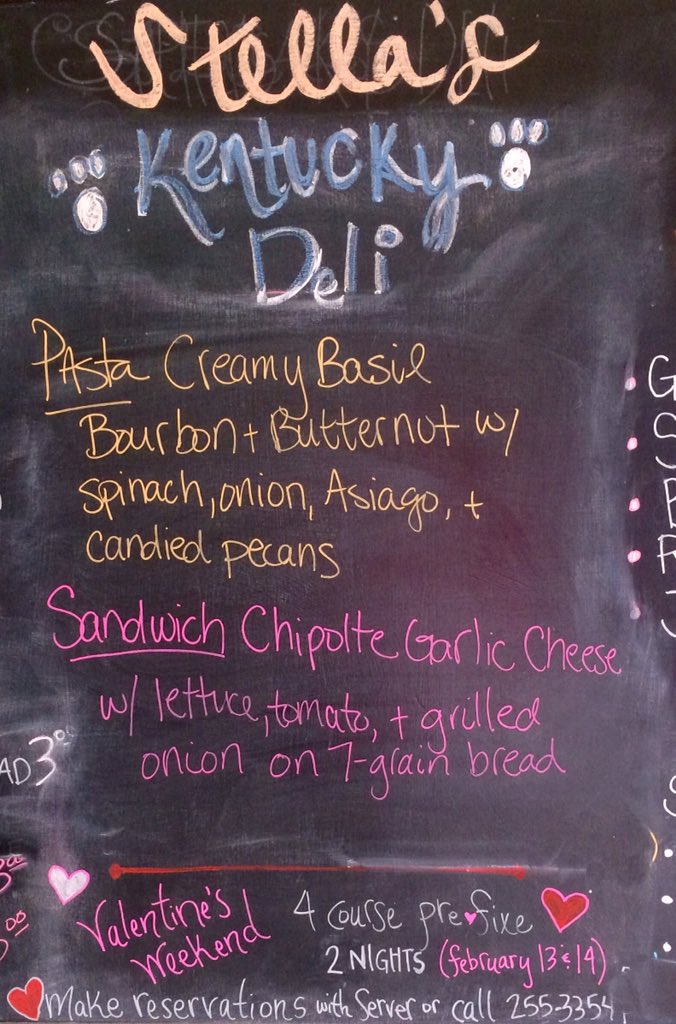 Stella's
Kentucky
Deli
Pasta Creamy Basil
Bourbon + Butternut w/
spinach, onion, Asiago, +
candied pecans
Sandwich Chipolte Garlic Cheese
w/ lettuce, tomato, + grilled
onion on 7-grain bread
AD 3
Valentine's
Weekend
4 course pre-fixe
2 NIGHTS (february 13 & 14)
Make reservations with Server or call 255-3354